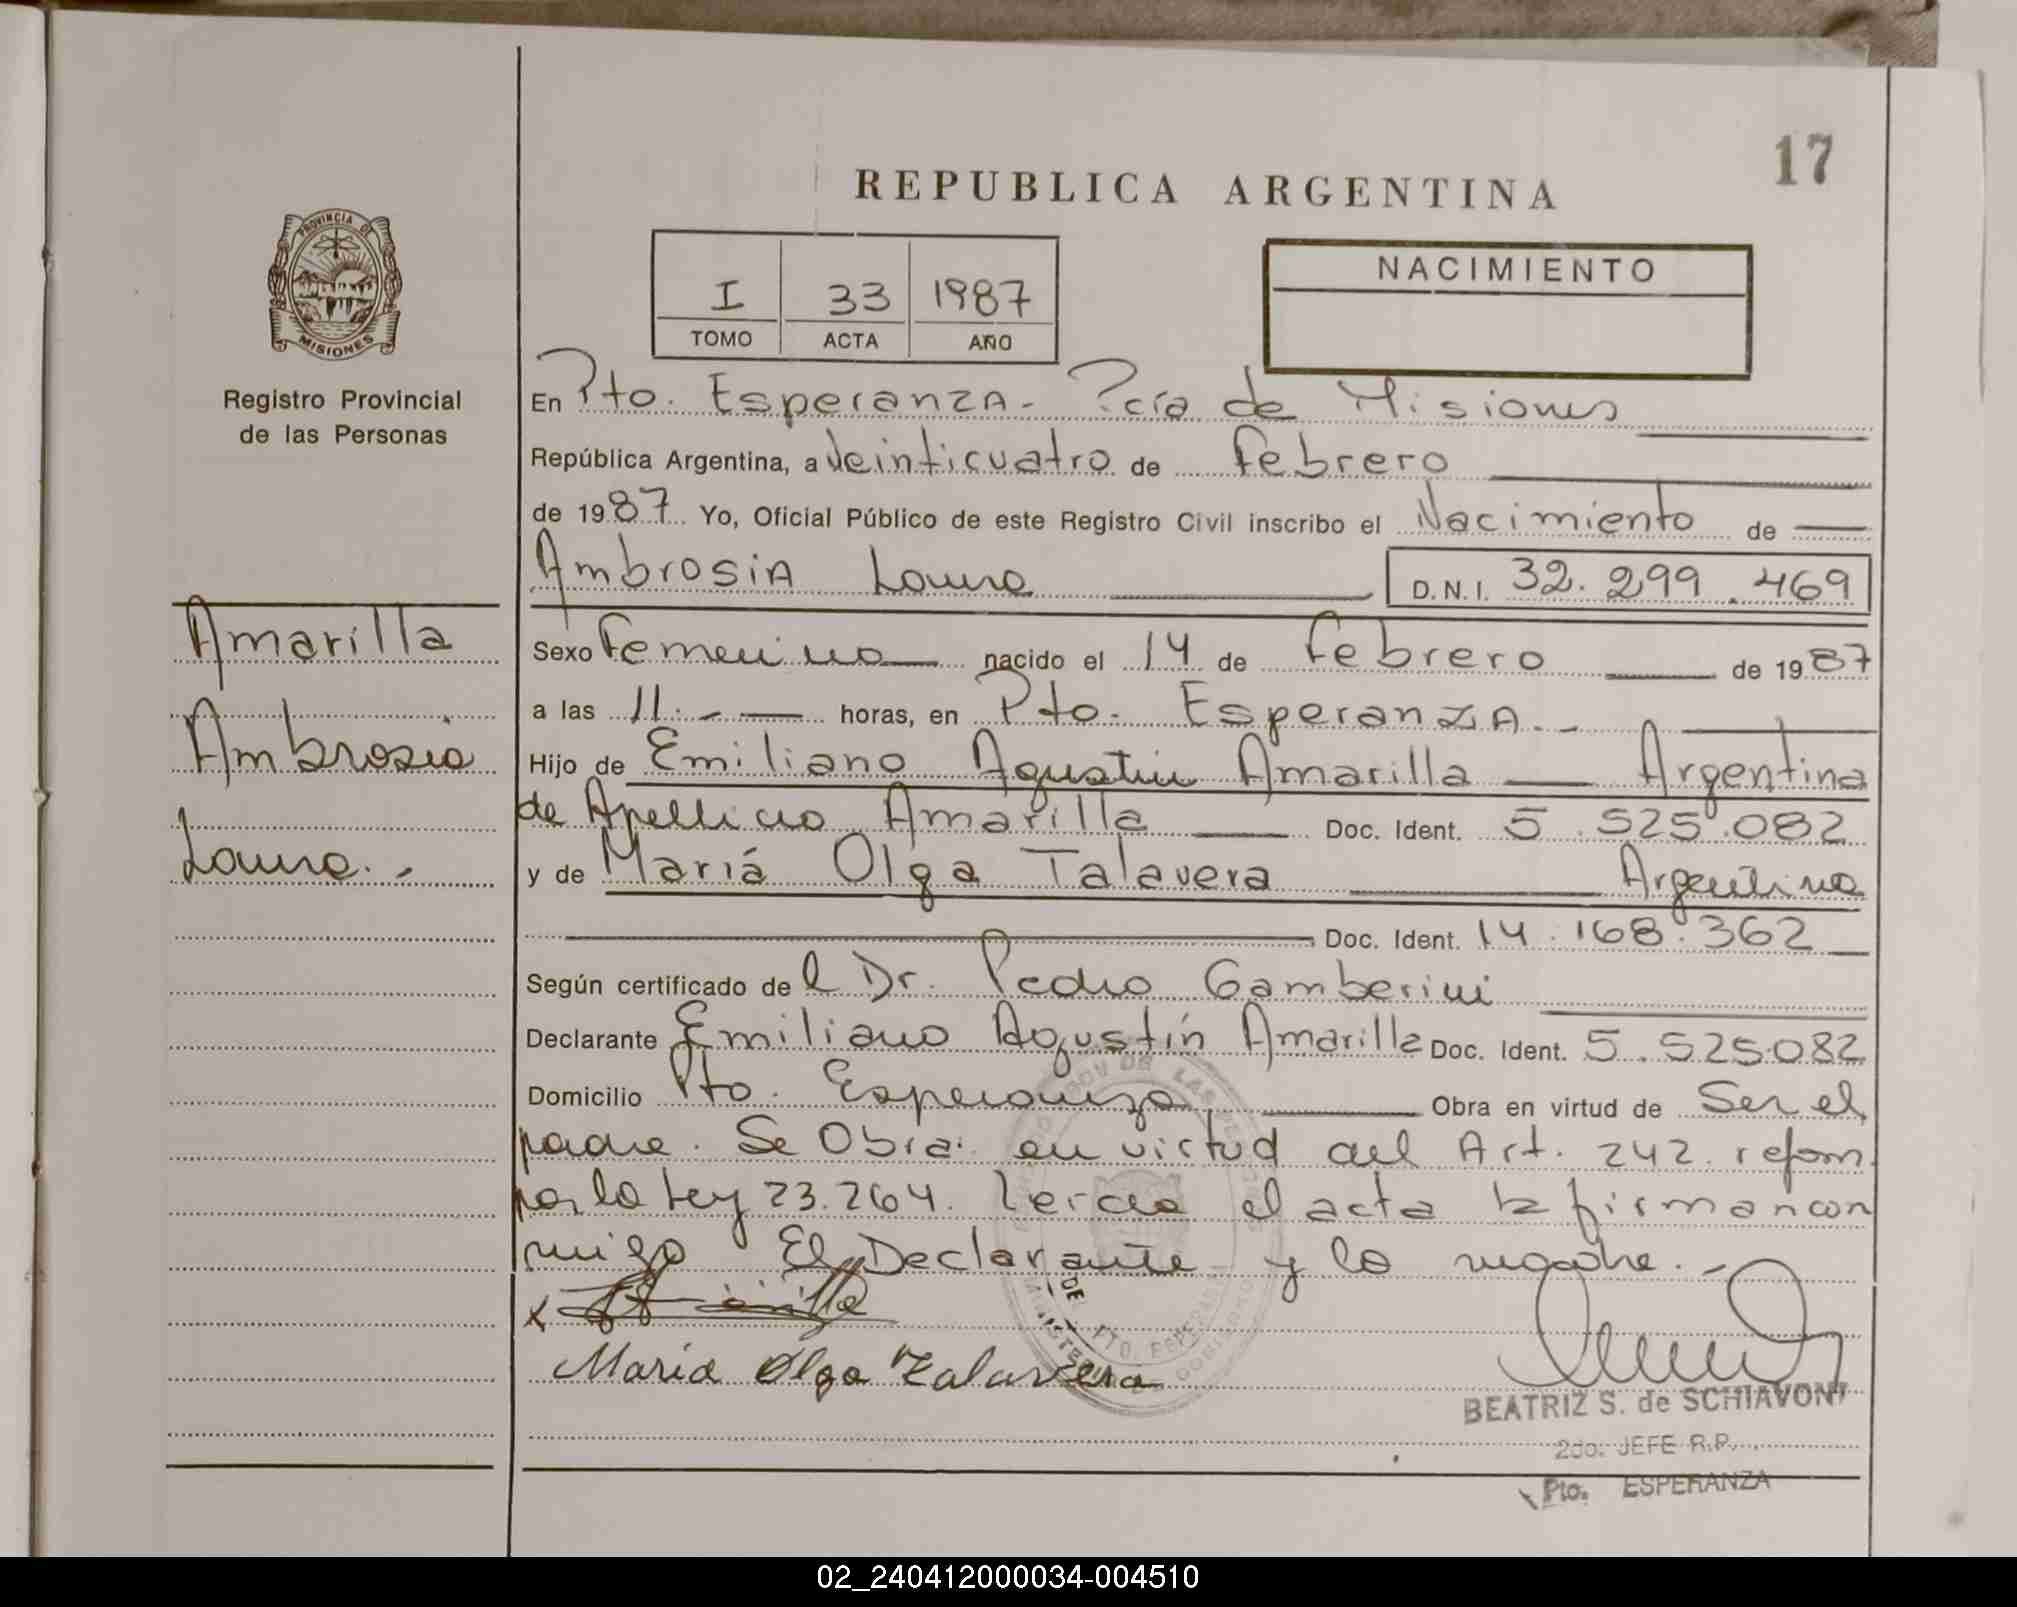 17
REPUBLICA ARGENTINA
PROVINCIA DE
MISIONES
Registro Provincial
de las Personas
I 33 1987
TOMO ACTA AÑO
NACIMIENTO
En Pto. Esperanza - Pcía de Misiones
República Argentina, a Veinticuatro de Febrero
de 1987 Yo, Oficial Público de este Registro Civil inscribo el Nacimiento de
Ambrosia Laura D.N.I. 32.299.469
Amarilla
Ambrosia
Laura.-
Sexo Femenino nacido el 14 de Febrero de 1987
a las 11.- horas, en Pto. Esperanza.-
Hijo de Emiliano Agustin Amarilla Argentina
de Apellido Amarilla Doc. Ident. 5.525.082
y de Mariá Olga Talavera Argentina
Doc. Ident. 14.168.362
Según certificado del Dr. Pedro Gamberini
Declarante Emiliano Agustín Amarilla Doc. Ident. 5.525.082
Domicilio Pto. Esperanza Obra en virtud de Ser el
padre. Se Obra: en virtud del Art. 242. reform.
por la Ley 23.264. Leída el acta la firman con
migo El Declarante y la madre.-
x
Maria Olga Talavera
PTO. ESPERANZA
BEATRIZ S. de SCHIAVONI
2do. JEFE R.P.
Pto. ESPERANZA
02_240412000034-004510